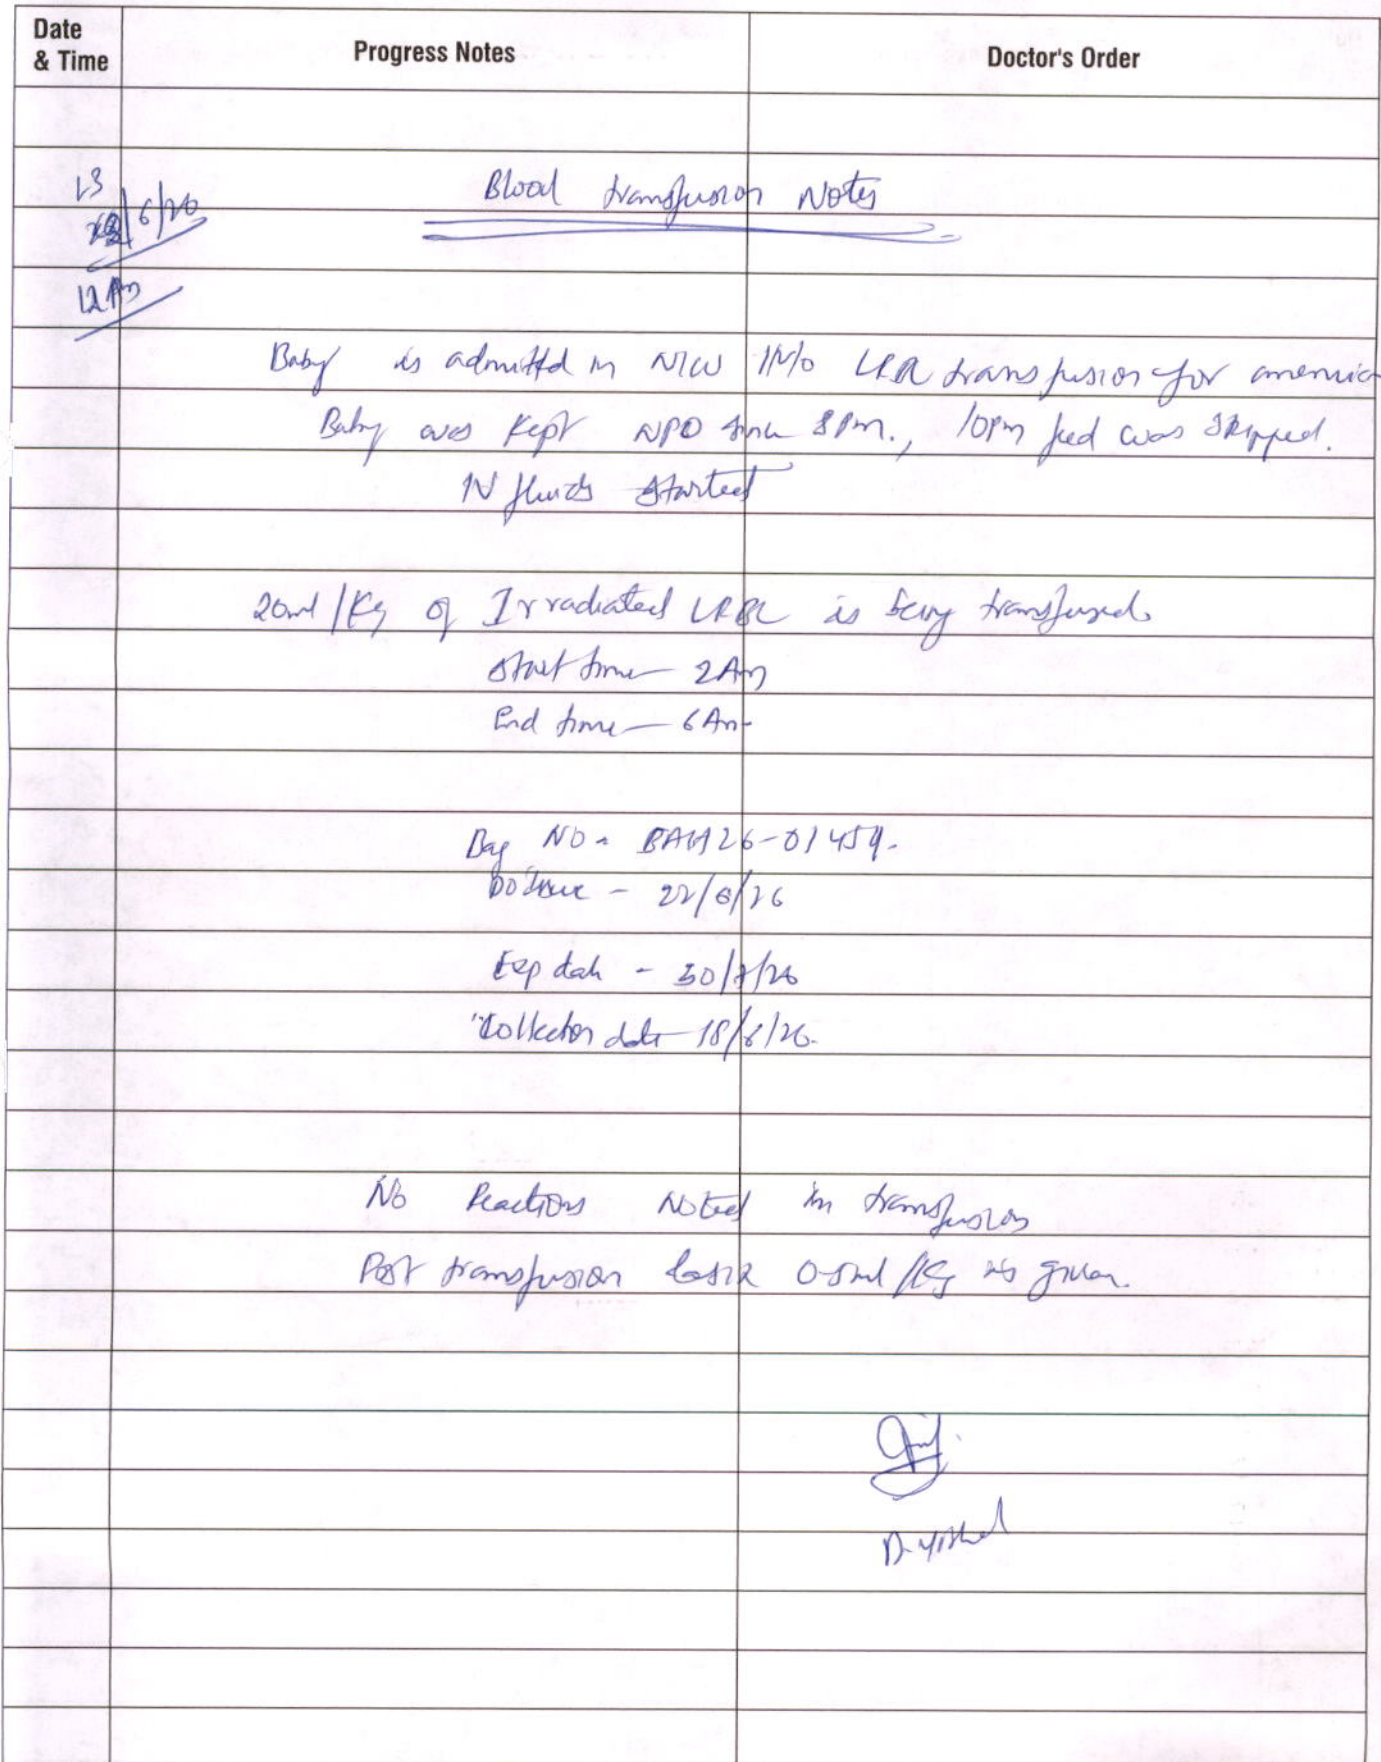 Date & Time
Progress Notes
Doctor's Order
Blood transfusion Notes
/6/26
12 Am
Baby is admitted in NICU I/V/O transfusion for anemia
Baby was kept NPO since 8Pm., 10pm feed was skipped.
IV fluids started
20ml/Kg of Irradiated LRBC is being transfused
Start time - 2Am
End time - 6Am
Bag No - BAH26-01459.
22/6/26
Exp date - 30/7/26
Collection date 18/6/26.
No Reactions Noted in transfusion
Post transfusion lasix 0.5ml/Kg is given.